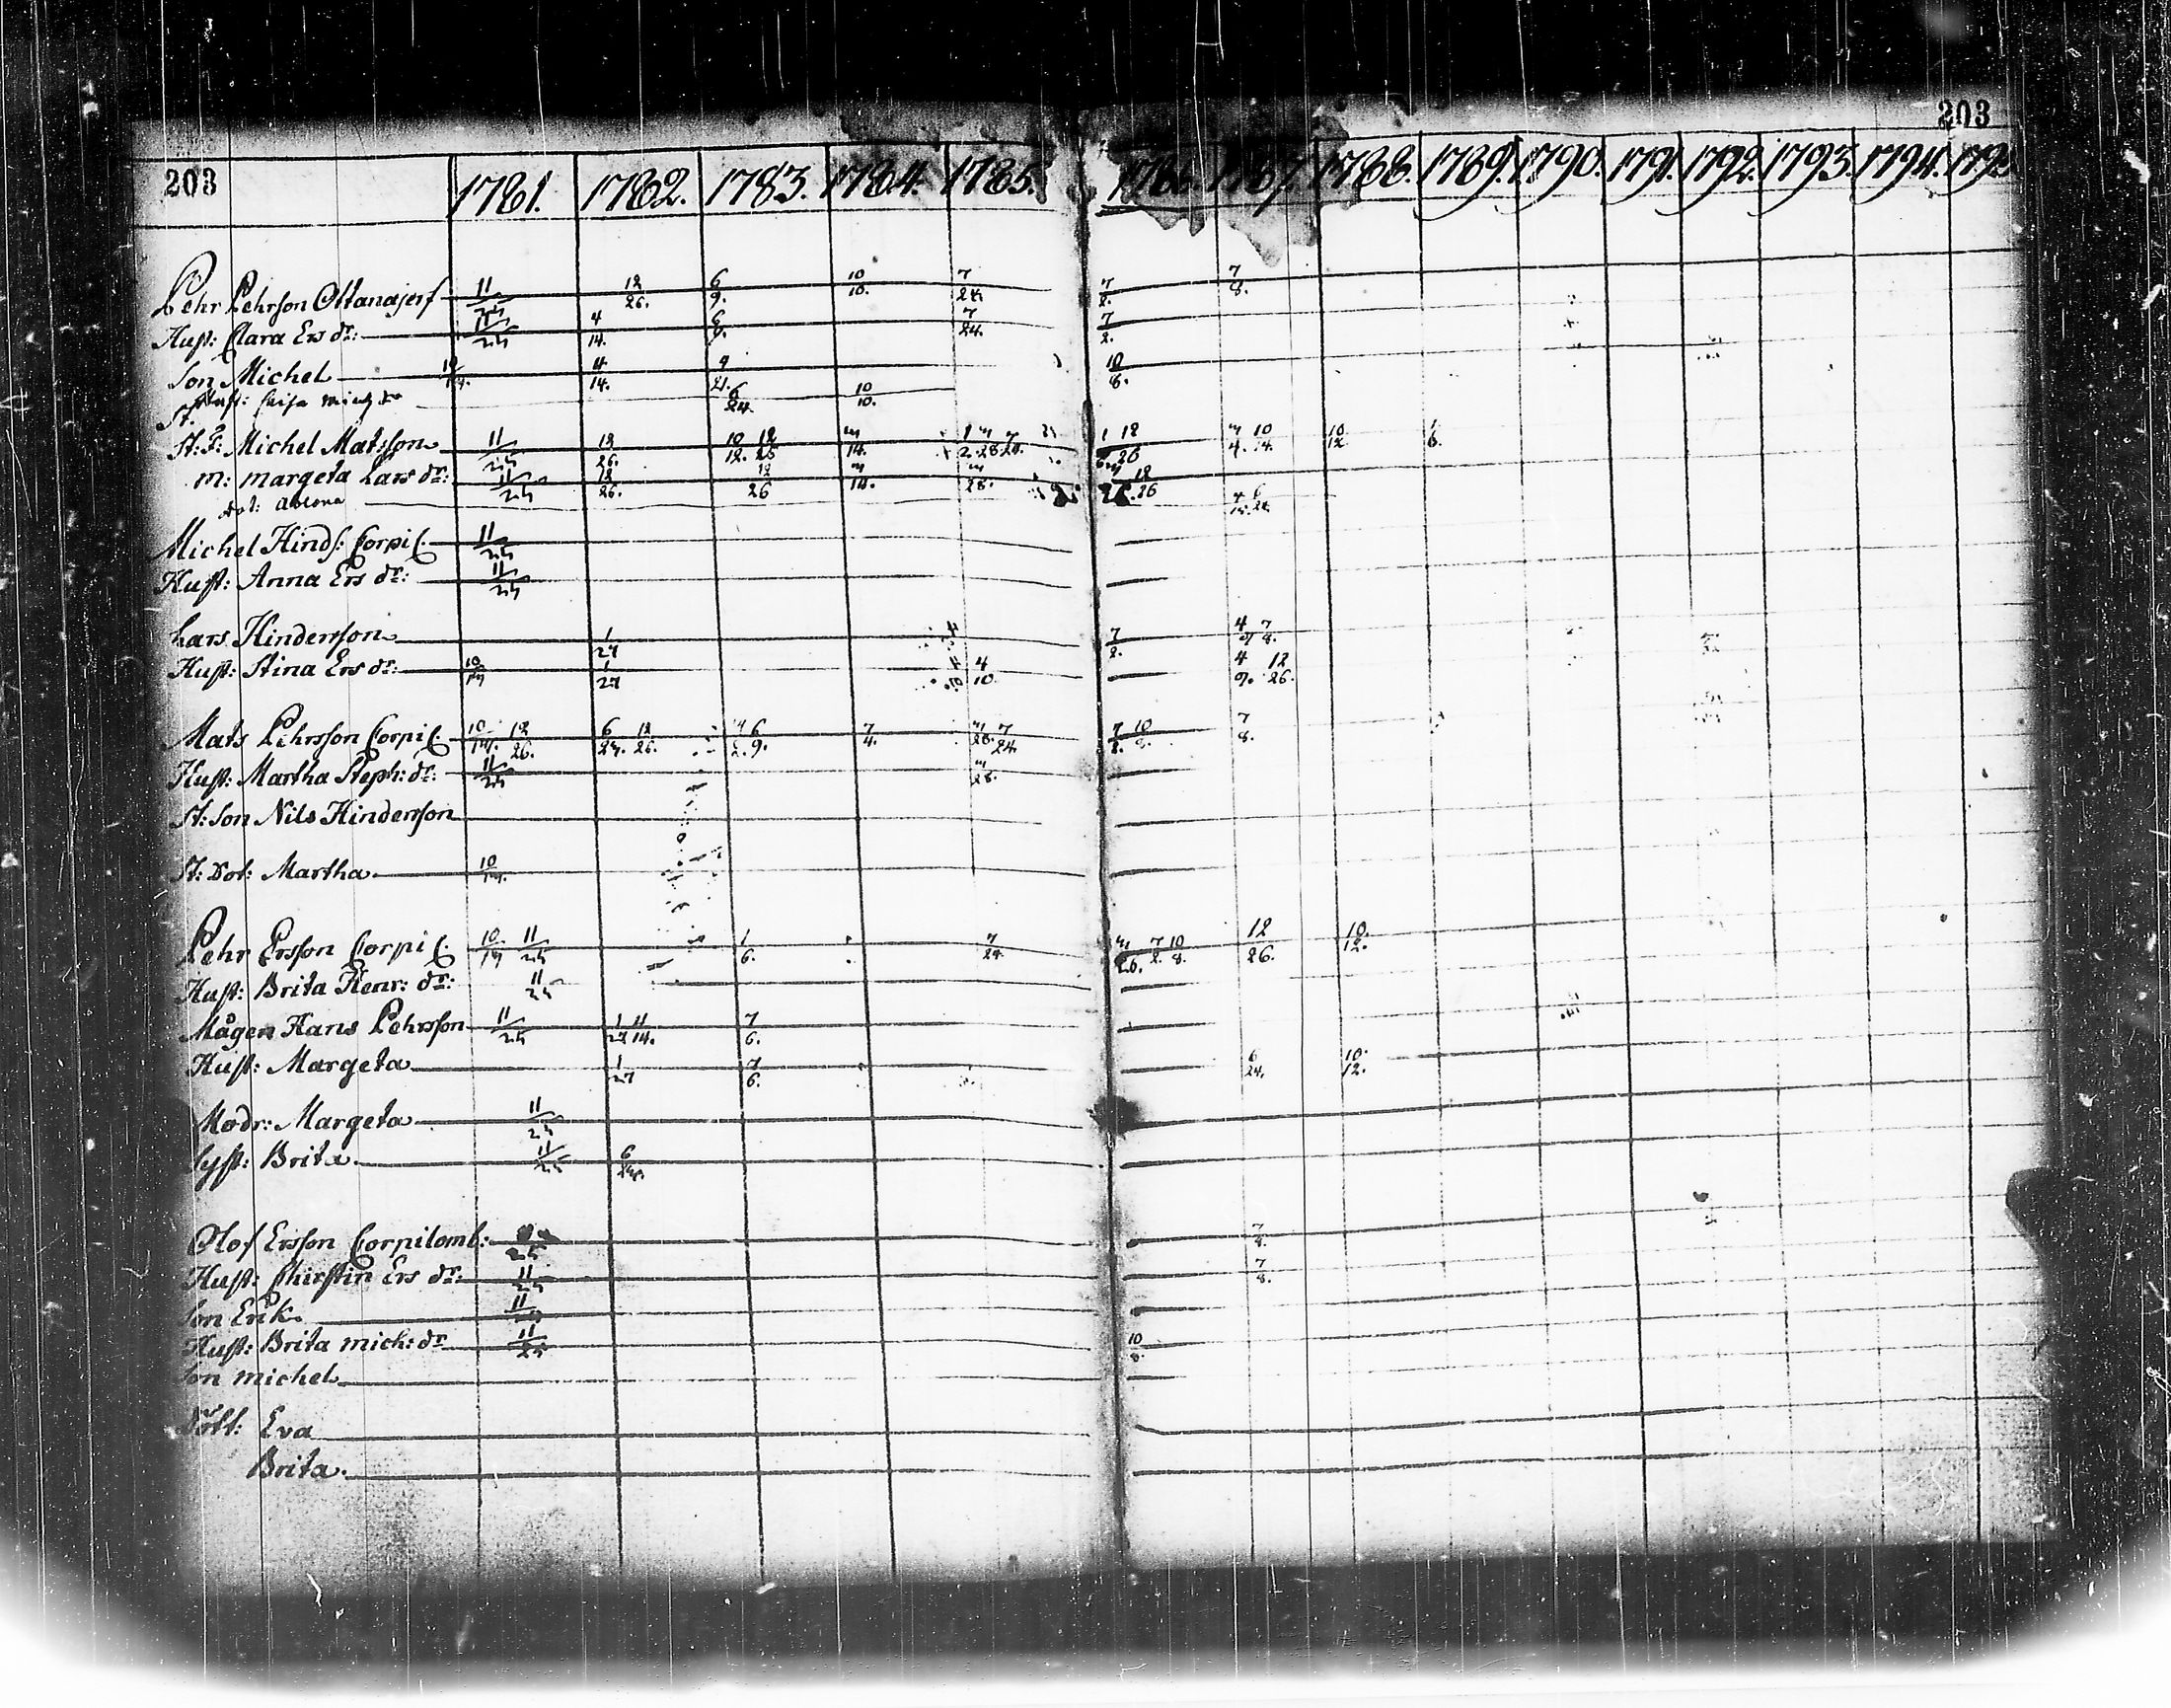 203
203 1781. 1782. 1783. 1784. 1785. 1786. 1787. 1788. 1789. 1790. 1791. 1792. 1793. 1794. 1795
Pehr Pehrson Ottanajerf 11/25 12/26. 6/9. 10/10. 7/24. 7/2. 7/8.
Hust: Clara Ers dr: 11/25 4/14. 6/9. 7/24. 7/2.
Son Michel 10/14. 4/14. 4/21. 10/8.
Hust: 6/24 10/10.
St.
St: F: Michel Matsson 11/25 12/26. 10/12. 12/26 14. 1/6. 12/26 10/12 1/6.
m: margeta Lars dr: 11/25 12/26. 12/26 14. 28. 12/26
dot:
Michel Hinds: Corpil. 11/25
Hust: Anna Ers dr: 11/25
Lars Hindersson 1/27 7/2. 4/9 7/8.
Hust: Stina Ers dr: 10/14 1/27 4/10. 4/9. 12/26.
Mats Pehrsson Corpil. 10/14. 12/26. 6/24. 12/26. 6/9. 7/4. 28. 7/24 7/2. 10/8. 7/8.
Hust: Martha Steph: dr: 11/25 28.
St: Son Nils Hindersson
St: Dot: Martha 10/14.
Pehr Ersson Corpil. 10/14 11/25 1/6. 7/24. 26. 7/2. 10/8. 12/26. 10/12.
Hust: Brita Henr: dr: 11/25
Mågen Hans Pehrsson 11/25 1/27 4/14. 7/6.
Hust: Margeta 1/27 7/6. 6/24. 10/12.
Modr: Margeta 11/25
Syst: Brita 11/25 6/24.
Olof Ersson Corpilomb: 25 7/8.
Hust: Chirstin Ers dr: 11/25 7/8.
Son Erik 11/25
Hust: Brita mich: dr 11/25 10/8.
Son michel
Dött: Eva
Brita.